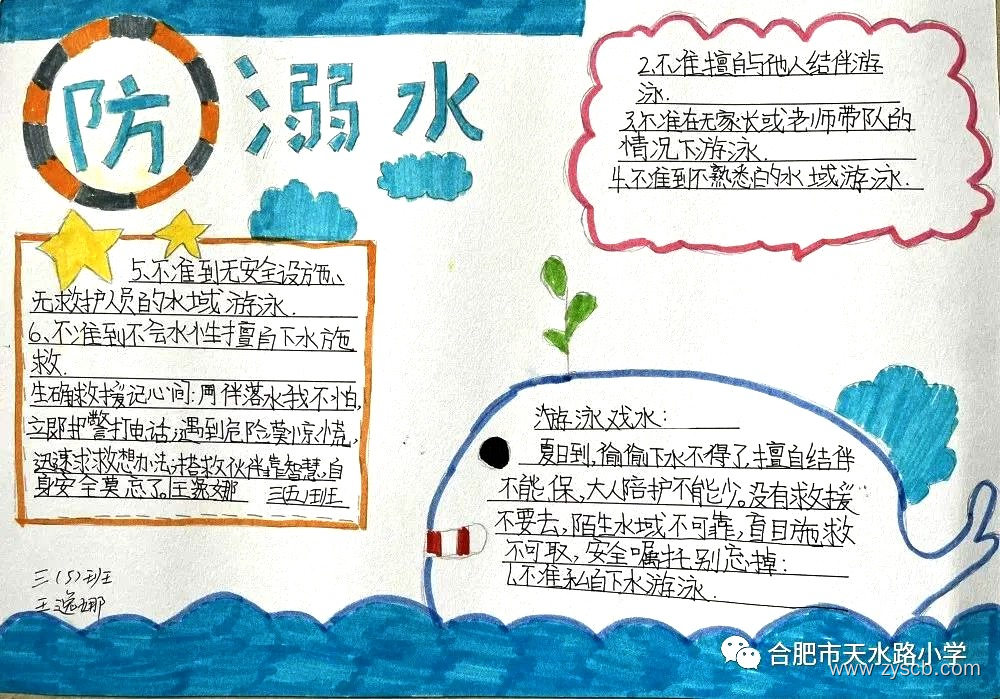 防溺水
游泳戏水:
夏日到,偷偷下水不得了,擅自结伴
不能保,大人陪护不能少。没有救援
不要去,陌生水域不可靠,盲目施救
不可取,安全嘱托别忘掉:
1.不准私自下水游泳.
2.不准擅自与他人结伴游
泳.
3.不准在无家长或老师带队的
情况下游泳.
4.不准到不熟悉的水域游泳.
5.不准到无安全设施、
无救护人员的水域游泳.
6、不准到不会水性擅自下水施
救.
生确救援记心间:同伴落水我不怕,
立即报警打电话,遇到危险莫惊慌,
迅速求救想办法,搭救伙伴靠智慧,自
身安全莫忘了。王逸娜 三五班
三(5)班
王逸娜
合肥市天水路小学
www.zyscb.com